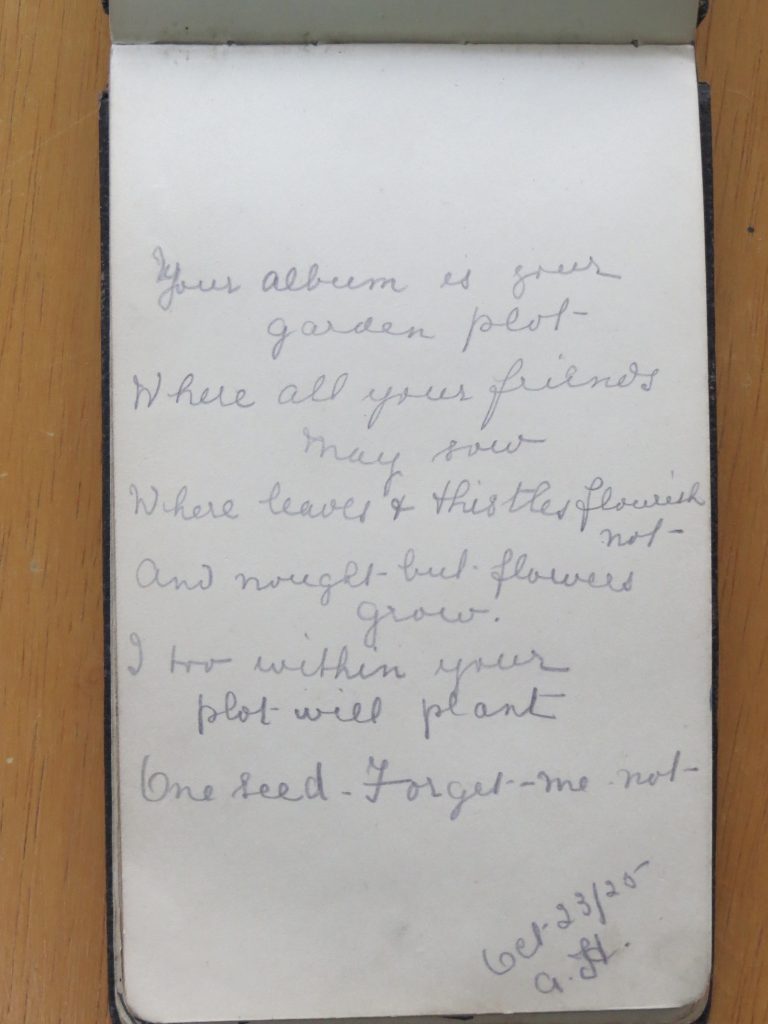 Your album is your
garden plot
Where all your friends
may sow
Where leaves & thistles flourish
not
And nought but flowers
grow.
I too within your
plot will plant
One seed - Forget-me not
Oct 23/25
a. H.